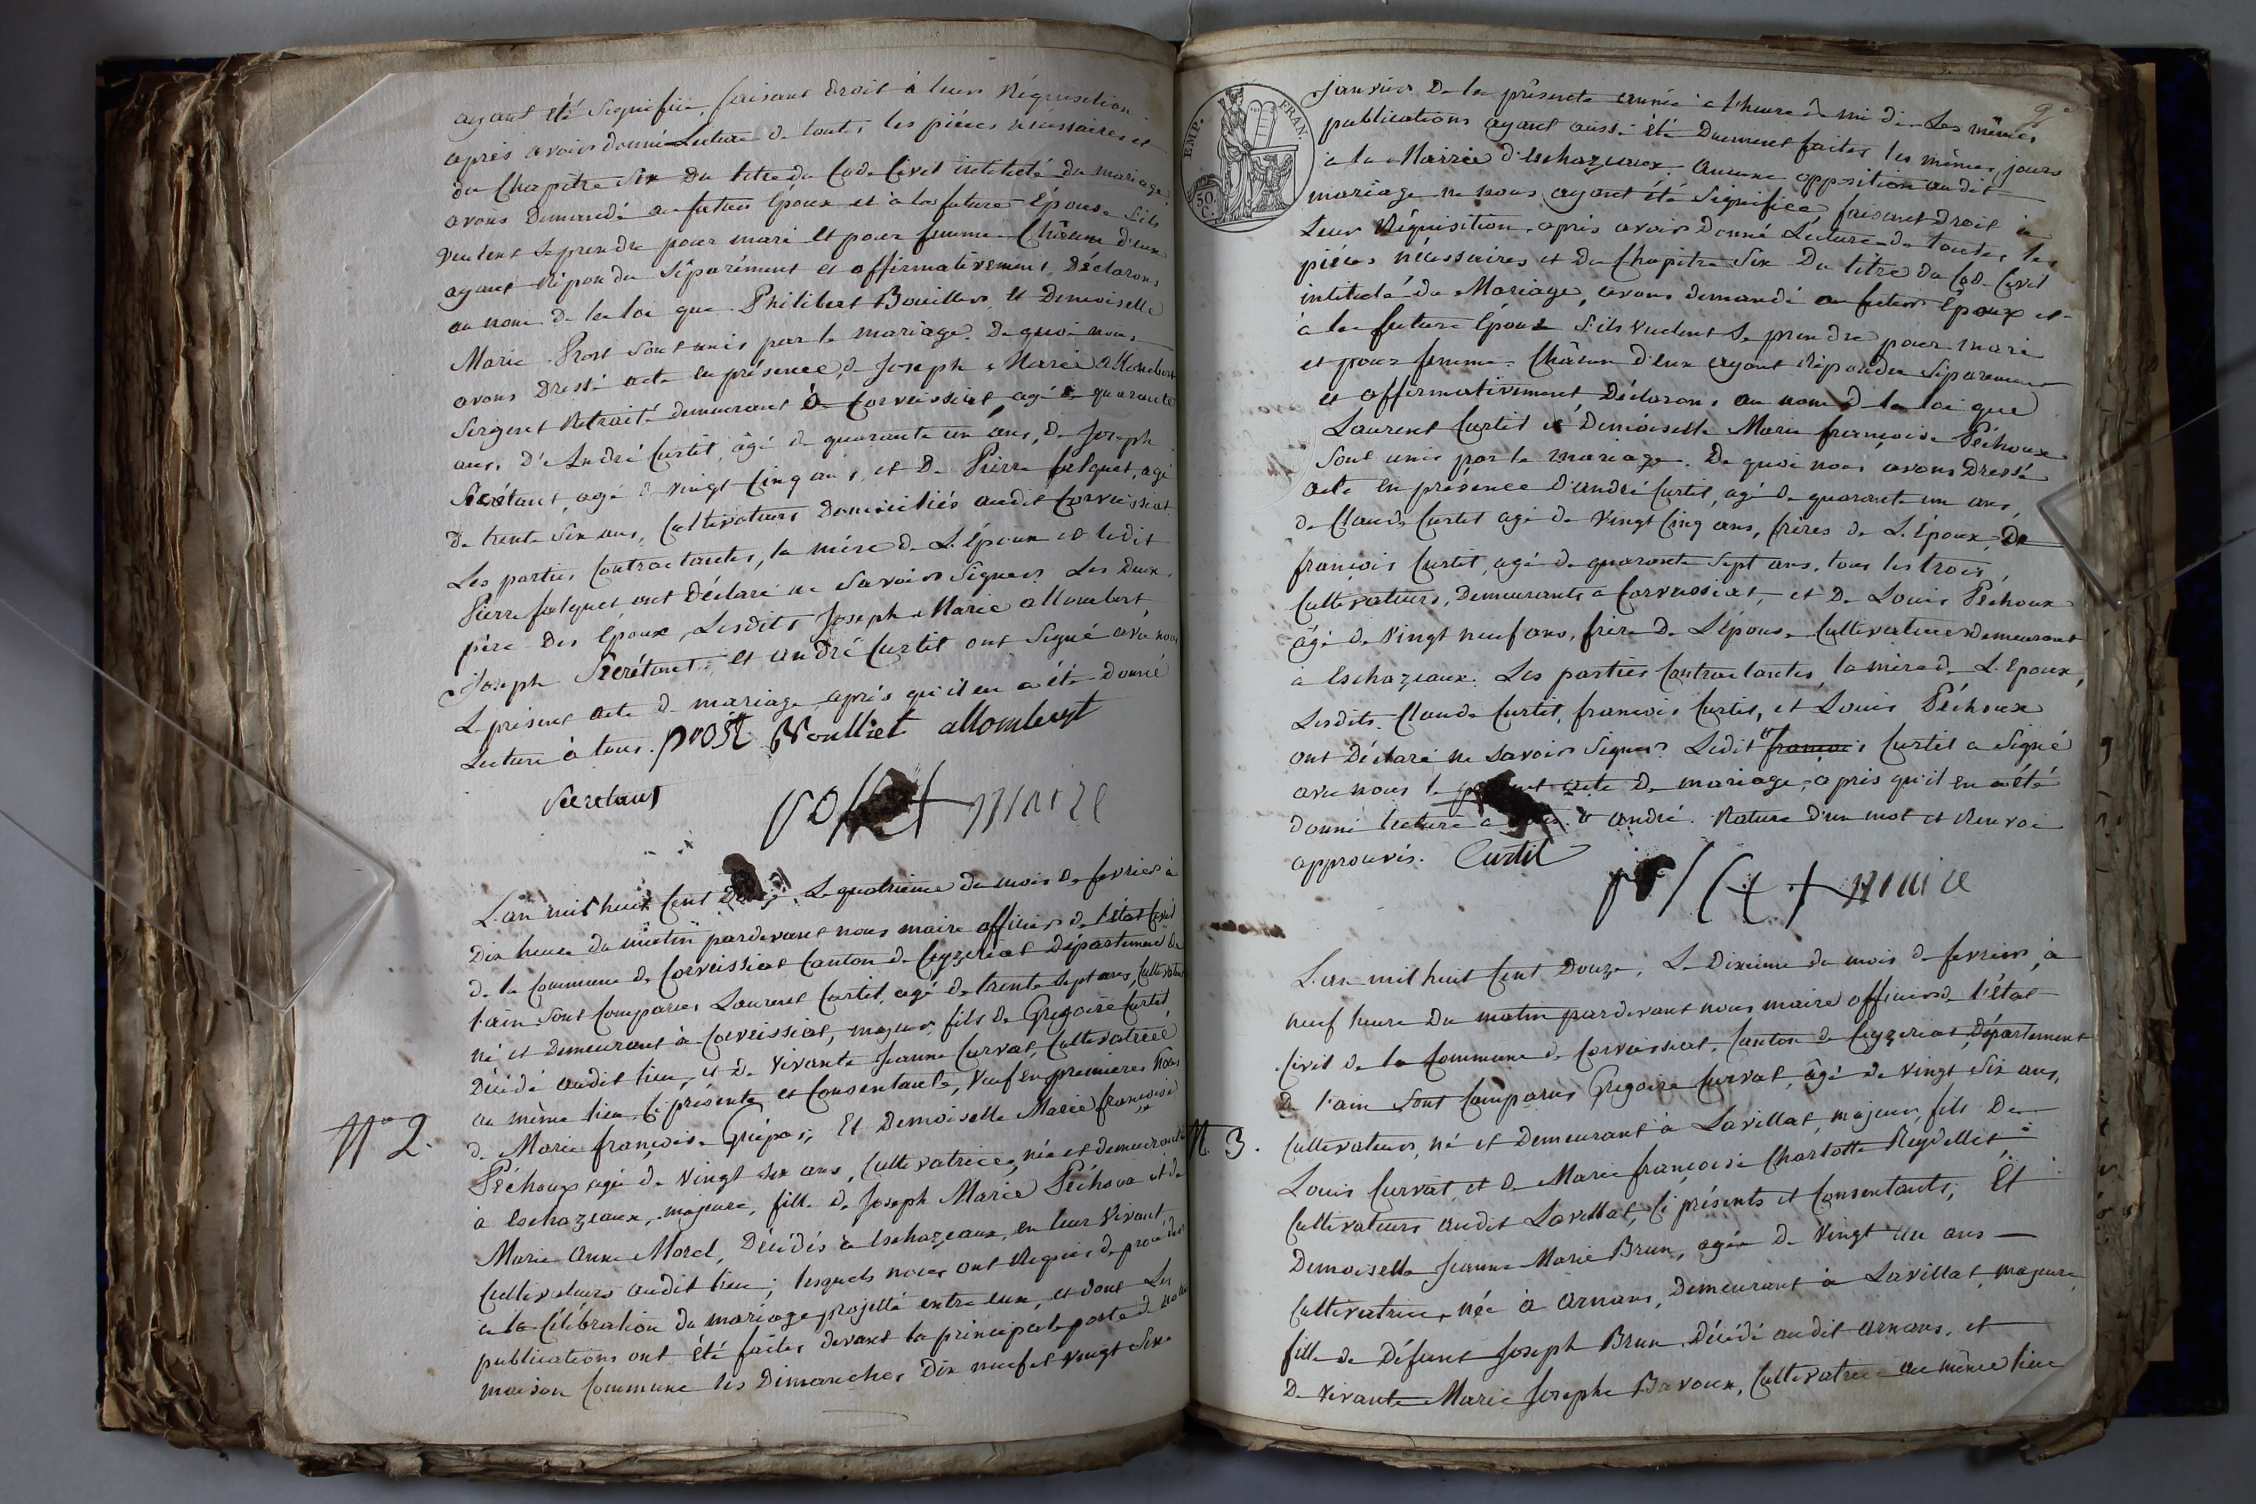 ayant été Signifiée, faisant droit à leur Réquisition
après avoir donné Lecture de toutes les pièces nécessaires et
du Chapitre Six du titre du Code Civil intitulé du mariage,
avons Demandé au futur Epoux et à la future Epouse s'ils
veulent se prendre pour mari et pour femme. Châcun d'eux
ayant Répondu Séparément et affirmativement, Déclarons
au nom de la loi que Philibert Bouillet et Demoiselle
Marie Prost sont unis par le mariage. De quoi nous
avons Dressé acte en présence de Joseph Marie allombert
Sergent Retraité demeurant à Corveissiat agé de quarante
ans, D'André Curtil, âgé de quarante un ans, de Joseph
Secrétant, agé de vingt Cinq ans, et De Pierre falquet, agé
De trente Six ans, Cultivateurs Domiciliés audit Corveissiat.
Les parties Contractantes, la mère de L'Epoux et ledit
Pierre falquet ont Déclaré ne Savoir Signer, Les Deux
père Des Epoux, Lesdits Joseph Marie allombert,
Joseph Secrétant, et andré Curtil ont Signé avec nous
Le présent acte de mariage après qu'il en a été donné
Lecture à tous. prost Boulliet allombert
Secretant
maire
L'an mil huit Cent Douze, Le quatrième du mois de fevrier à
Dix heures du matin pardevant nous maire officier de l'état Civil
de la Commune de Corveissiat Canton de Ceyzeriat Département de
l'ain Sont Comparus Laurent Curtil, agé de trente Sept ans, Cultivateur
né et demeurant à Corveissiat, majeur, fils de Gregoire Curtil,
Décédé audit lieu, et de vivante Jeanne Curvat, Cultivatrice
au même lieu Ci présente et Consentante, veuf en premières Nôces
N° 2.
de Marie françoise Grépas; Et Demoiselle Marie françoise
Péchoux agé de vingt Six ans, Cultivatrice, née et demeurant
à Eschazeaux, majeure, fille de Joseph Marie Péchoux et de
Marie Anne Morel, Décédés à Eschazeaux, en leur vivant
Cultivateurs audit lieu; lesquels nous ont Requis de procéder
à la Célébration du mariage projetté entre eux, et dont Les
publications ont été faites devant la principale porte de notre
maison Commune les Dimanches Dix neuf et vingt Six
EMP. FRAN.
50. C.
2
janvier De la présente année à l'heure de midi. Les mêmes
publications ayant aussi été Duement faites les mêmes jours
à la Mairie d'Eschazeaux. Aucune opposition audit
mariage ne nous ayant été Signifiée, faisant Droit à
Leur Réquisition, après avoir Donné Lecture de toutes les
pièces nécessaires et du Chapitre Six Du titre du Code Civil
intitulé du Mariage, avons demandé au futur Epoux et
à la future Epouse s'ils veulent se prendre pour mari
et pour femme. Châcun d'eux ayant Répondu Séparement
et affirmativement Déclarons au nom de la loi que
Laurent Curtil et Demoiselle Marie françoise Péchoux
Sont unis par le mariage. De quoi nous avons Dressé
acte en présence D'andré Curtil, agé de quarante un ans,
de Claude Curtil agé de vingt Cinq ans, frères de L'époux, De
françois Curtil, agé de quarante Sept ans, tous les trois
Cultivateurs, Demeurants à Corveissiat, et De Louis Péchoux
âgé de vingt neuf ans, frère De L'épouse Cultivateur demeurant
à Eschazeaux. Les parties Contractantes, la mère de L'Epoux,
Lesdits Claude Curtil, françois Curtil, et Louis Péchoux
ont Déclaré ne Savoir Signer. Ledit françois Curtil a Signé
avec nous le présent acte De mariage, après qu'il en a été
donné lecture à tous. andré. Rature d'un mot et Renvoi
approuvés. Curtil
maire
L'an mil huit Cent Douze, Le Dixième du mois de fevrier, à
neuf heure Du matin pardevant nous maire officier de l'état
Civil de la Commune de Corveissiat, Canton de Ceyzeriat, Département
De l'ain Sont Comparus Gregoire Curvat, âgé de vingt Six ans,
N° 3.
Cultivateur, né et Demeurant à Lavillat, majeur, fils De
Louis Curvat, et de Marie françoise Charlotte Reydellet
Cultivateurs audit Lavillat, Ci présents et Consentants; Et
Demoiselle Jeanne Marie Brun, agée de vingt un ans
Cultivatrice, née à Arnans, Demeurant à Lavillat, majeure,
fille de Défunt Joseph Brun, Décédé audit Arnans, et
De vivante Marie Josephe Bavoux, Cultivatrice au même lieu